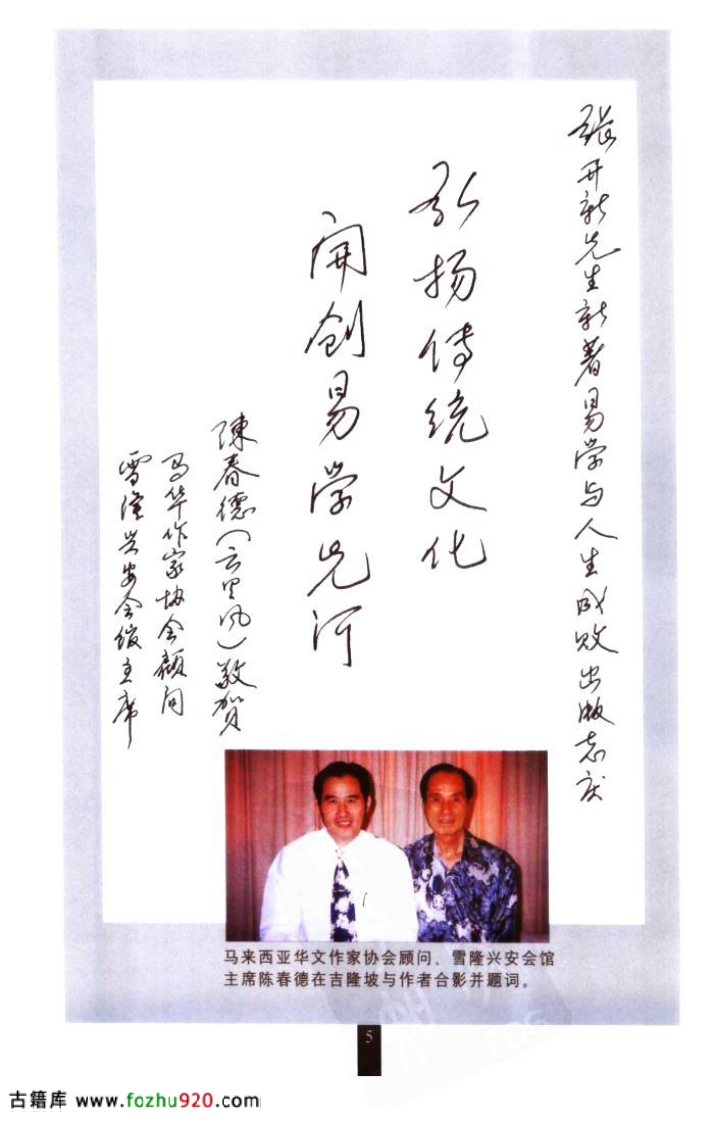 张开新先生新著易学与人生成败出版志庆
弘扬传统文化
开创易学先河
陳春德(云里风)敬贺
马华作家协会顾问
雪隆兴安会馆主席
马来西亚华文作家协会顾问、雪隆兴安会馆
主席陈春德在吉隆坡与作者合影并题词。
5
古籍库 www.fozhu920.com